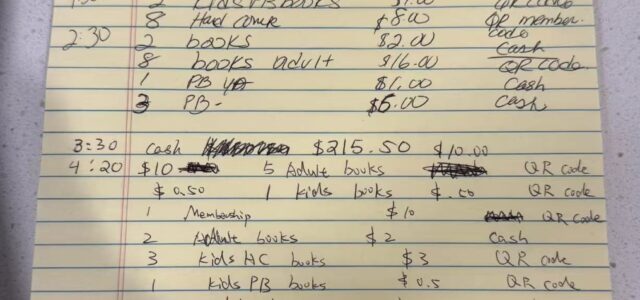 2 Kids PB books $1.00 QR code
8 Hard cover $8.00 QR member. code
2:30 2 books $2.00 Cash
8 books adult $16.00 QR code.
1 PB $1.00 Cash
3 PB - $5.00 Cash
3:30 cash $215.50 $10.00
4:20 $10 5 Adult books QR code
$0.50 1 Kids books $.50 QR code
1 Membership $10 QR code
2 Adult books $2 cash
3 Kids HC books $3 QR code
1 Kids PB books $0.5 QR code